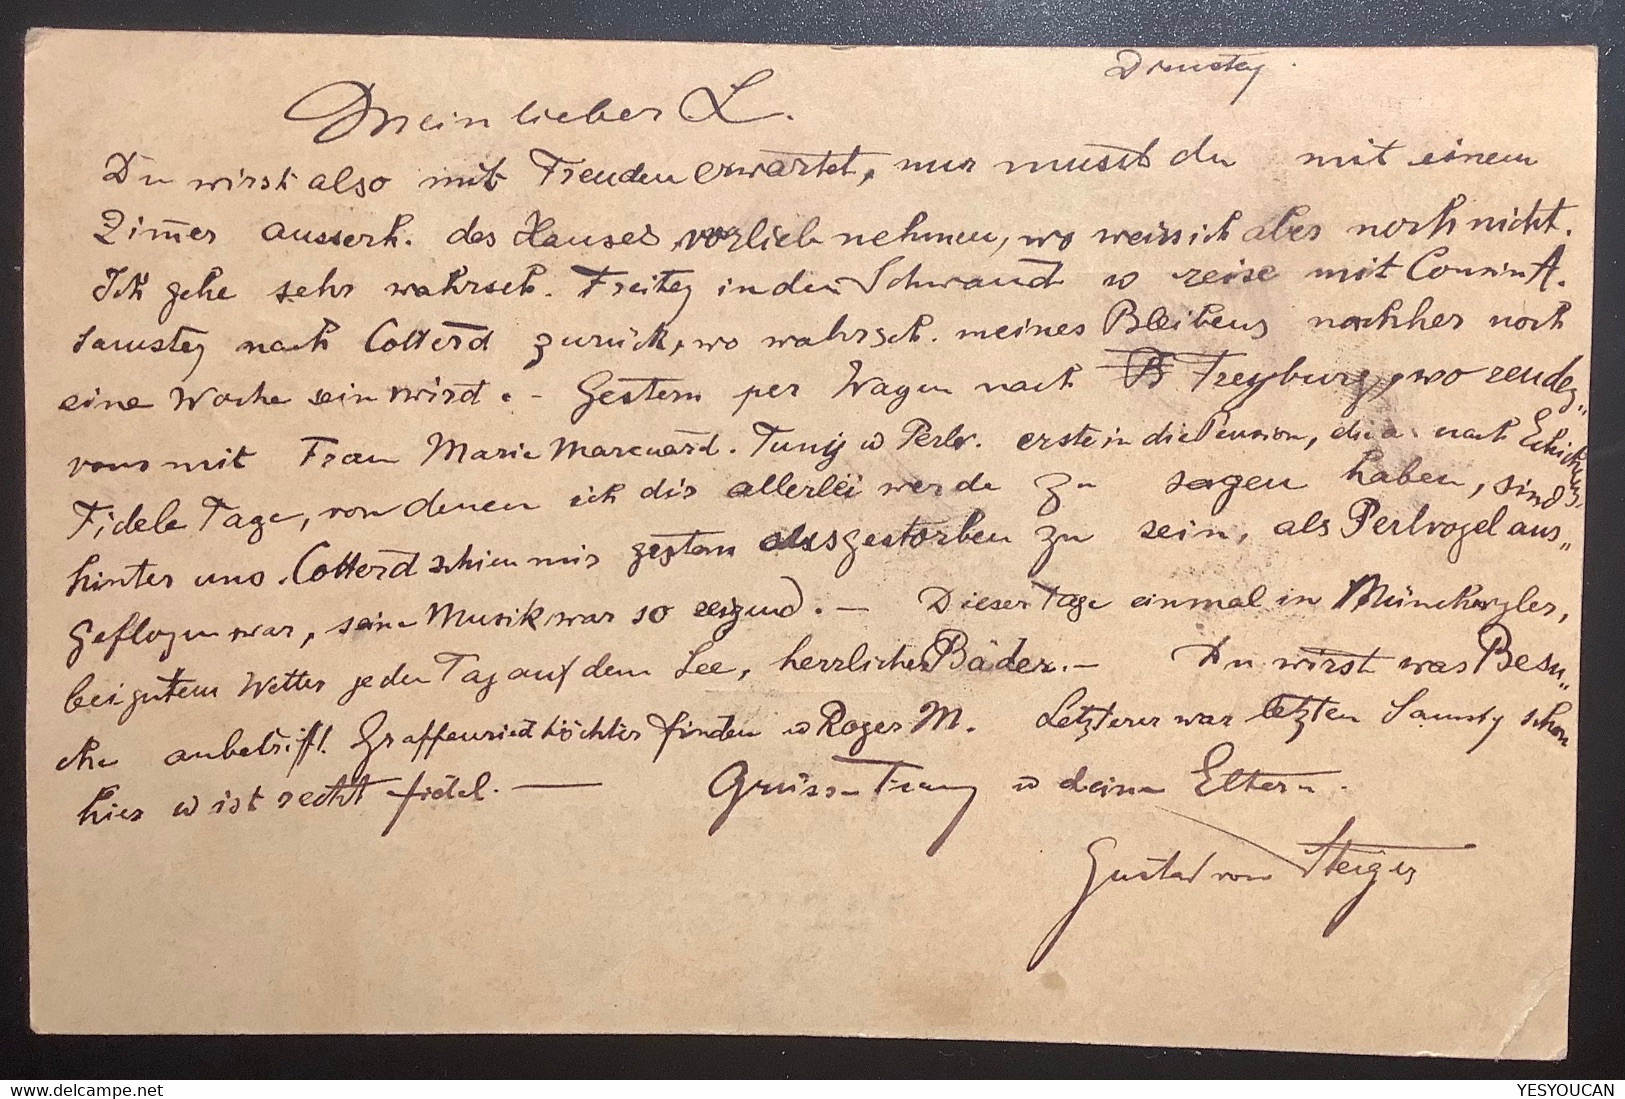 Dienstag.
Mein lieber L.
Du wirst also mit Freuden erwartet, nur musst du mit einem
Zim̅er ausserh. des Hauses vorlieb nehmen, wo weiss ich aber noch nicht.
Ich gehe sehr wahrsch. Freitag in den Schwand u reise mit Cousin A.
Samstag nach Cotterd zurück, wo wahrsch. meines Bleibens nachher noch
eine Woche sein wird. - Gestern per Wagen nach Freyburg, wo rendez„
vous mit Frau Marie Marcuard. Tunij u Perlv. erste in die Pension, nach
Fidele Tage, von denen ich dir allerlei werde zu sagen haben, sind
hinter uns. Cotterd schien mir gestern ausgestorben zu sein, als Perlvogel aus„
geflogen war, seine Musik war so reizend. - Dieser Tage einmal in Münchwyler,
bei gutem Wetter jeden Tag auf dem See, herrliche Bäder. - Du wirst was Besu„
che anbetrifft Graffenriedtöchter finden u Roger M. Letzterer war letzten Samstg schon
hier u ist recht fidel. — Grüsse Franz u deine Eltern.
Gustav von Steiger
delcampe.net
YESYOUCAN